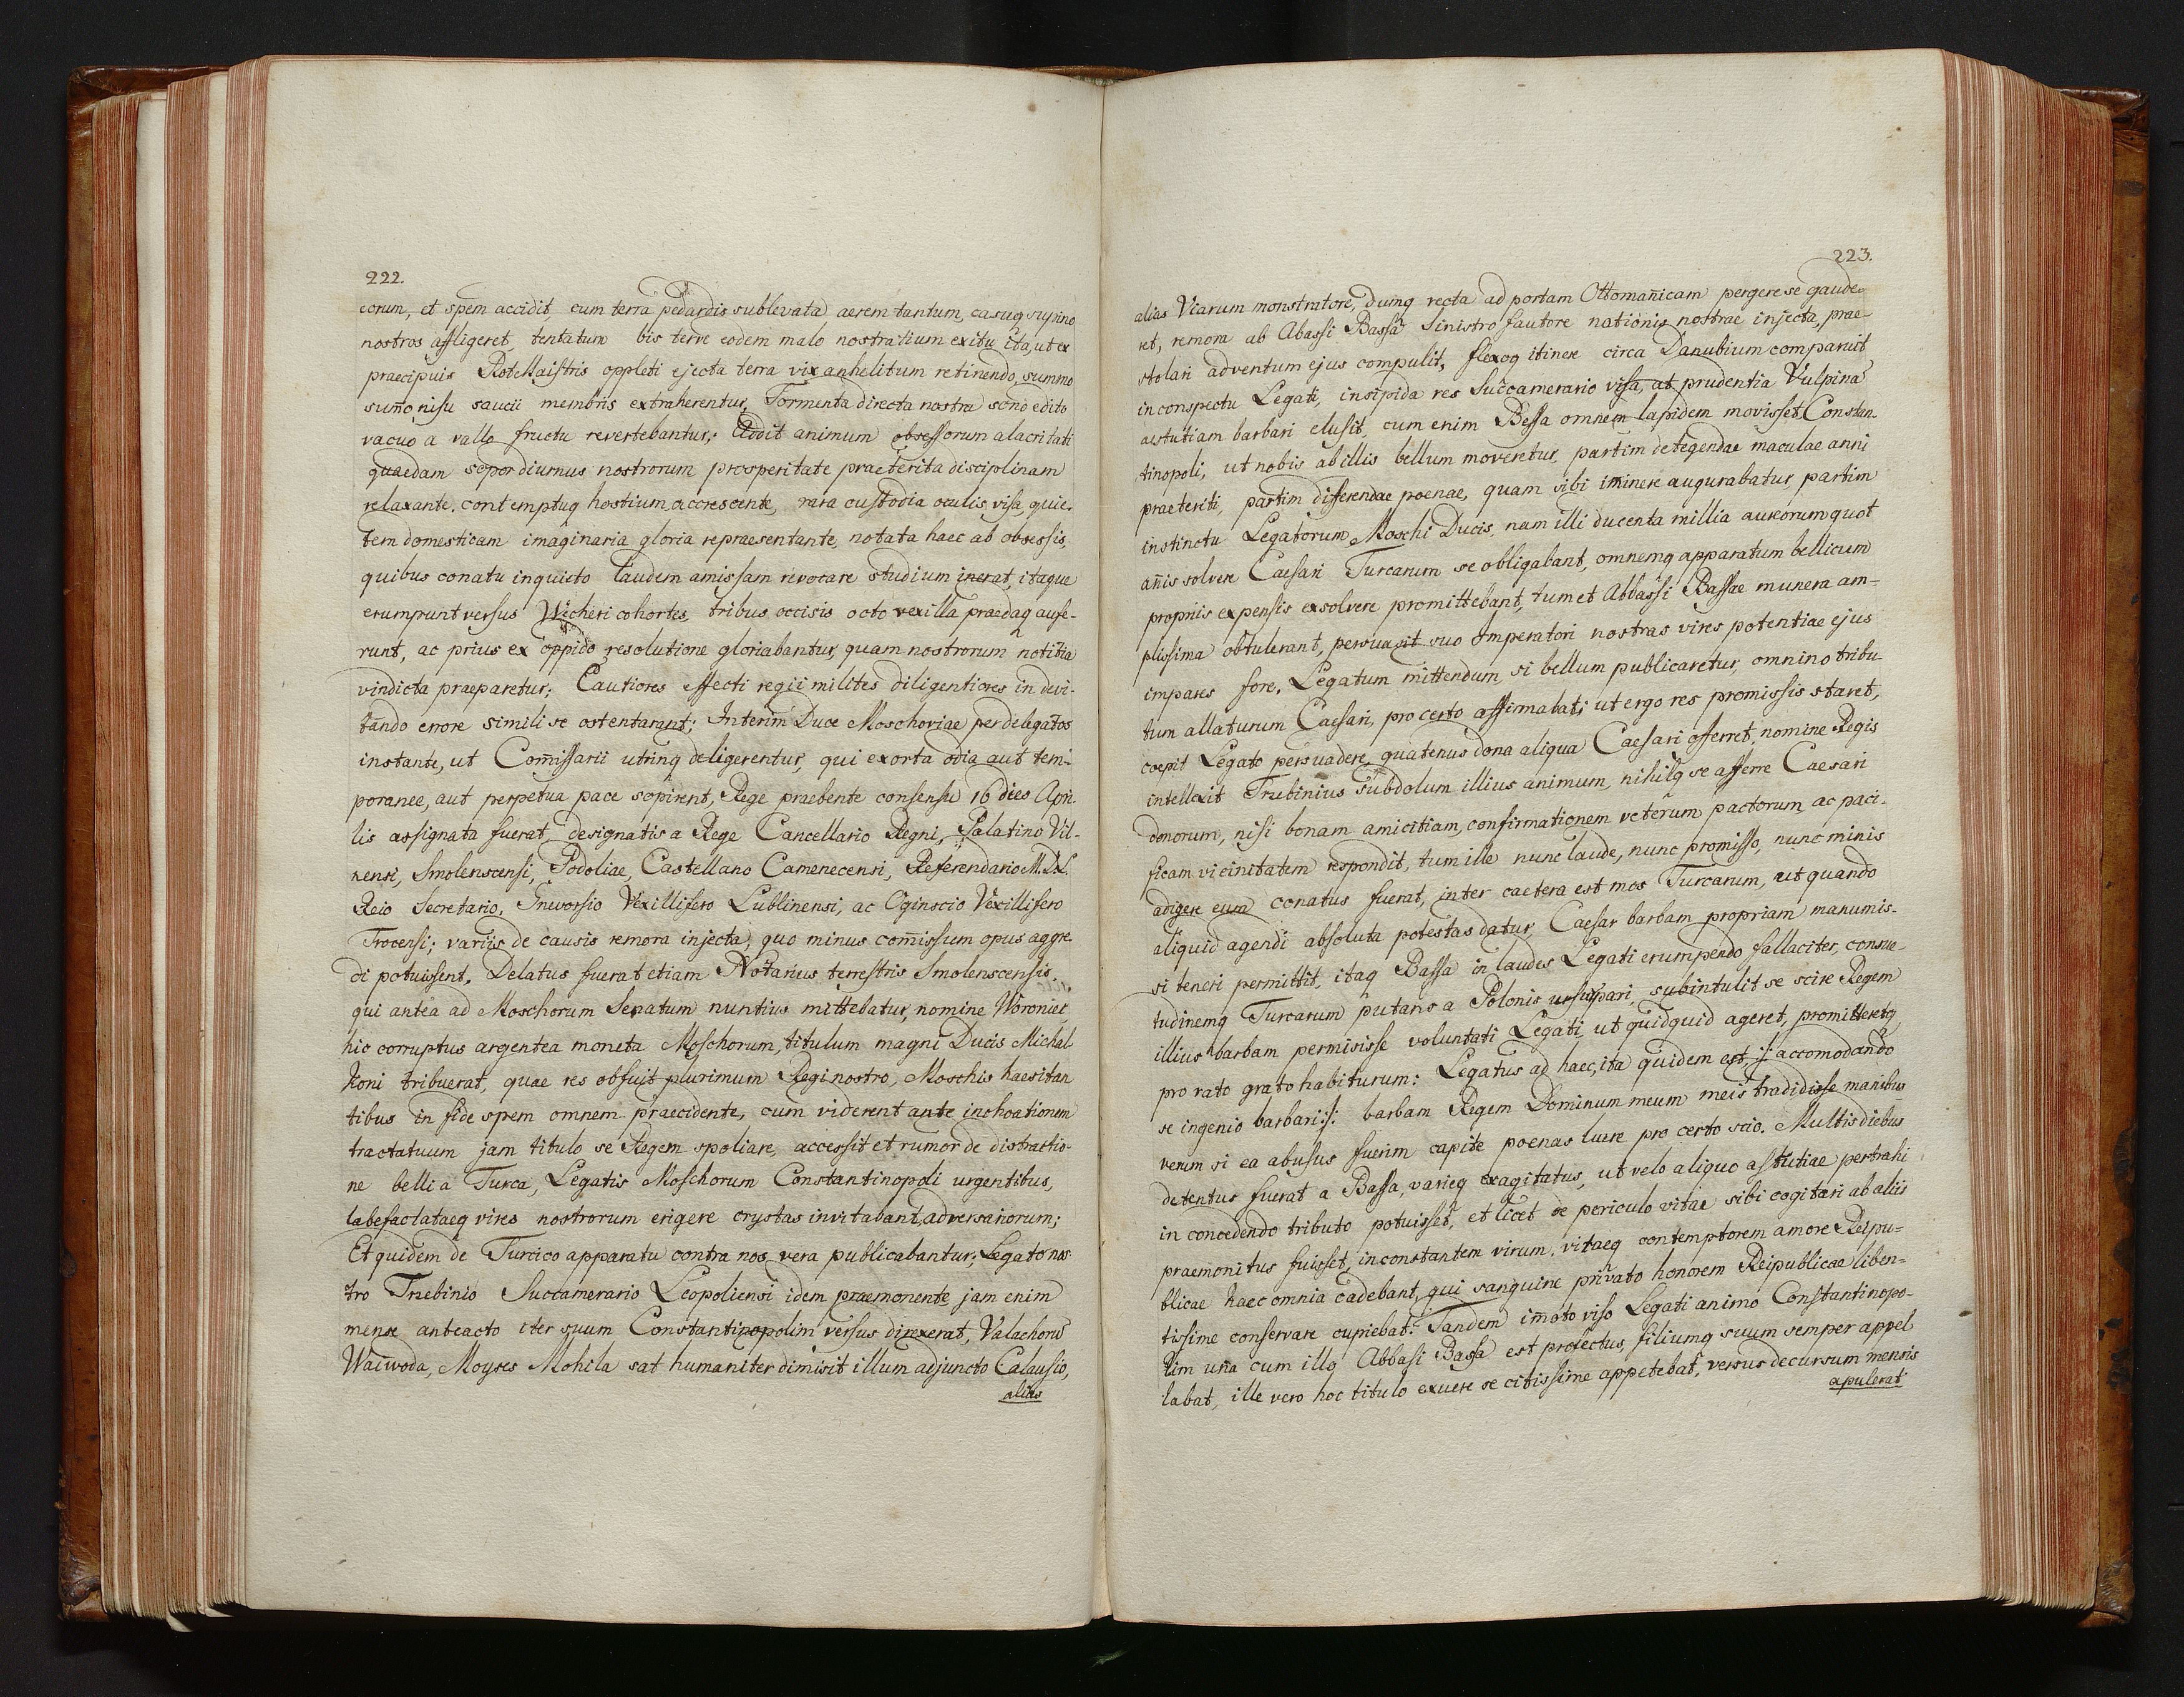 222.
eorum, et spem accidit, cum terra pedardis sublevata aerem tantum, casuq supino
nostros affligeret, tentatum bis terve eodem malo nostratium exitu ita, ut ex
praecipuis RotMaistris oppleti ejecta terra vix anhelitum retinendo, summo
sum̄o nisu saucii membris extraherentur, Tormenta directa nostra sono edito
vacuo a vallo fructu revertebantur; Addit animum obsessorum alacritati
quaedam sopor diurnus nostrorum prosperitate praeterita disciplinam
relaxante, contemptuq hostium accrescente, rara custodia oculis visa, quie-
tem domesticam imaginaria gloria repraesentante, notata haec ab obsessis,
quibus conatu inquieto laudem amissam revocare studium inerat, itaque
erumpunt versus Wicheri cohortes, tribus occisis octo vexilla praedaq aufe-
runt, ac prius ex oppido resolutione gloriabantur, quam nostrorum notitia
vindicta praeparetur; Cautiores effecti regii milites diligentiores in devi-
tando errore simili se ostentarant; Interim Duce Moschoviae per delegatos
instante, ut Com̄issarii utrinq deligerentur, qui exorta odia aut tem-
poranee, aut perpetua pace sopirent, Rege praebente consensu 16 dies Apri-
lis assignata fuerat, designatis a Rege Cancellario Regni, Palatino Vil-
nensi, Smolenscensi, Podoliae, Castellano Camenecensi, Referendario M.D.L.
Reio Secretario, Gnevorsio Vexillifero Lublinensi, ac Oginscio Vexillifero
Trocensi; variis de causis remora injecta, quo minus com̄issum opus aggre
di potuissent, Delatus fuerat etiam Notarius terrestris Smolenscensis,
qui antea ad Moschorum Senatum nuntius mittebatur, nomine Woroniec
hic corruptus argentea moneta Moschorum, titulum magni Ducis Michal
koni tribuerat, quae res obfuit plurimum Regi nostro, Moschis haesitan
tibus in fide spem omnem praecidente, cum viderent ante inchoationem
tractatuum jam titulo se Regem spoliare, accessit et rumor de distractio-
ne belli a Turca, Legatis Moschorum Constantinopoli urgentibus,
labefactataeq vires nostrorum erigere crystas invitabant, adversariorum;
Et quidem de Turcico apparatu contra nos vera publicabantur; Legato nos
tro Trzebinio Succamerario Leopoliensi idem praemonente jam enim
mense anteacto iter suum Constantinopolim versus direxerat, Valachorū
Waiwoda, Moyses Mohila sat humaniter dimisit illum adjuncto Calausio,
alias
223.
alias Viarum monstratore, dumq recta ad portam Ottoman̄icam pergere se gaude-
ret, remora ab Abassi Bassa Sinistro fautore nationis nostrae injecta, prae-
stolari adventum ejus compulit, flexoq itinere circa Danubium comparuit
in conspectu Legati, insipida res Succamerario visa, at prudentia Vulpina
astutiam barbari elusit, cum enim Bessa omnem lapidem movisset Constan-
tinopoli, ut nobis ab illis bellum moveretur, partim detegendae maculae anni
praeteriti, partim differendae poenae, quam sibi im̄inere augurabatur, partim
instinctu Legatorum Moschi Ducis, nam illi ducenta millia aureorum quot
an̄is solvere Caesari Turcarum se obligabant, omnemq apparatum bellicum
propriis expensis exsolvere promittebant, tum et Abbassi Bassae munera am-
plissima obtulerant, persuasit suo Imperatori nostras vires potentiae ejus
impares fore, Legatum mittendum si bellum publicaretur, omnino tribu-
tum allaturum Caesari, pro certo affirmabat; ut ergo res promissis staret,
coepit Legato persuadere, quatenus dona aliqua Caesari offerret, nomine Regis
intellexit Trzebinius subdolum illius animum, nihilq se afferre Caesari
donorum, nisi bonam amicitiam, confirmationem veterum pactorum, ac paci-
ficam vicinitatem respondit, tum ille nunc laude, nunc promisso, nunc minis
adigere eum conatus fuerat, inter caetera est mos Turcarum, ut quando
aliquid agendi absoluta potestas datur, Caesar barbam propriam manumis-
si teneri permittit, itaq Bassa in laudes Legati erumpendo fallaciter, consue-
tudinemq Turcarum putans a Polonis usurpari, subintulit se scire Regem
illius barbam permisisse voluntati Legati, ut quidquid ageret, promitteretq
pro rato grato habiturum: Legatus ad haec, ita quidem est, :/: accomodando
se ingenio barbari:/: barbam Regem Dominum meum meis tradidisse manibus
verum si ea abusus fuerim capite poenas luere pro certo scio. Multis diebus
detentus fuerat a Bassa, varieq exagitatus, ut velo aliquo astutiae pertrahi
in concedendo tributo potuisset, et licet de periculo vitae sibi cogitari ab aliis
praemonitus fuisset, inconstantem virum, vitaeq contemptorem amore Reipu-
blicae haec omnia cadebant, qui sanguine privato honorem Reipublicae liben-
tissime conservare cupiebat: Tandem im̄oto viso Legati animo Constantinopo-
lim una cum illo Abbasi Bassa est profectus, filiumq suum semper appel
labat, ille vero hoc titulo exuere se citissime appetebat, versus decursum mensis
apulerat